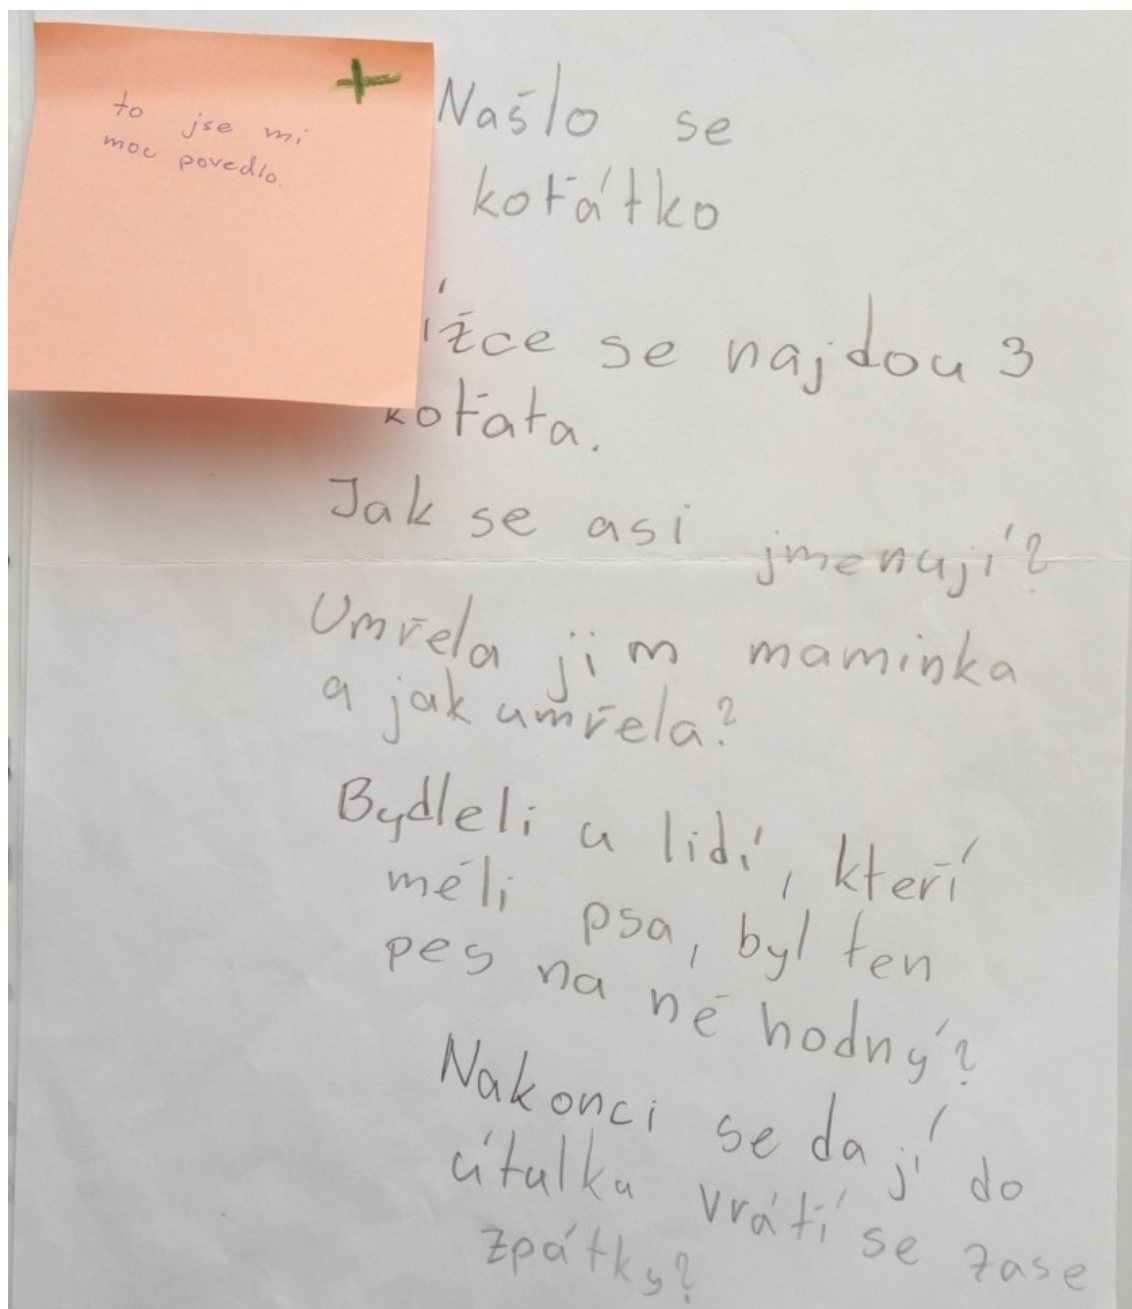 to jse mi
moc povedlo.
Našlo se
koťátko
ížce se najdou 3
koťata.
Jak se asi jmenují?
Umřela jim maminka
a jak umřela?
Bydleli u lidí, kteří
měli psa, byl ten
pes na ně hodný?
Nakonci se dají do
útulku vrátí se zase
zpátky?